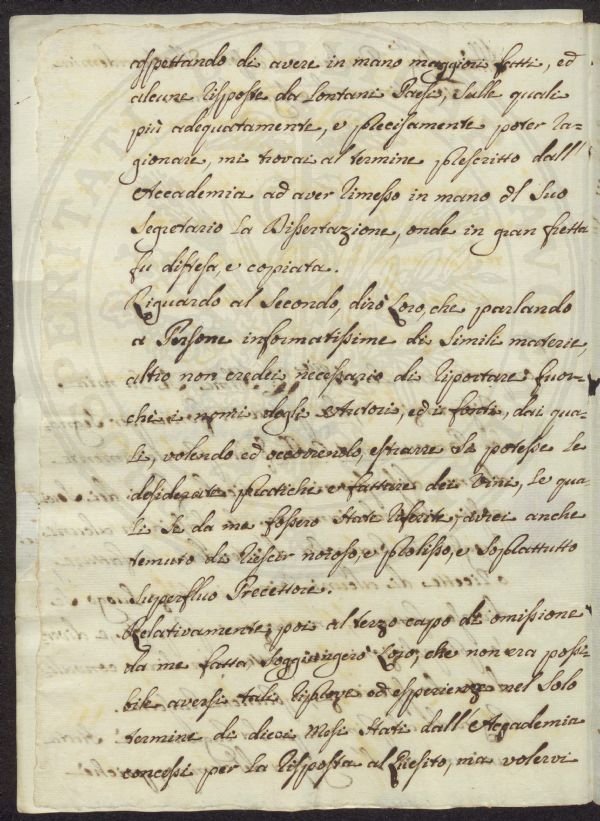 aspettando di avere in mano maggiori fatti, ed
alcune risposte da lontani Paesi, sulle quali
più adequatamente, e precisamente poter ra-
gionare, mi trovai al termine prescritto dall'
Accademia ad aver rimesso in mano del suo
Segretario la Dissertazione, onde in gran fretta
fu distesa, e copiata.
Riguardo al secondo, dirò loro, che parlando
a Persone informatissime di simili materie,
altro non credei necessario di riportare fuor-
chè i nomi degli Autori, ed i fonti, dai qua-
li, volendo ed occorrendo, estrarre si potesse le
desiderate pratiche e fatture dei vini, le qua-
li se da me fossero state riferite, avrei anche
temuto di riescir noioso, e prolisso, e soprattutto
superfluo Precettore.
Relativamente poi al terzo capo di omissione
da me fatta, soggiungerò loro, che non era possi-
bile aversi tali riprove ed esperienze nel solo
termine di dieci Mesi stati dall'Accademia
concessi per la risposta al Quesito, ma volervi